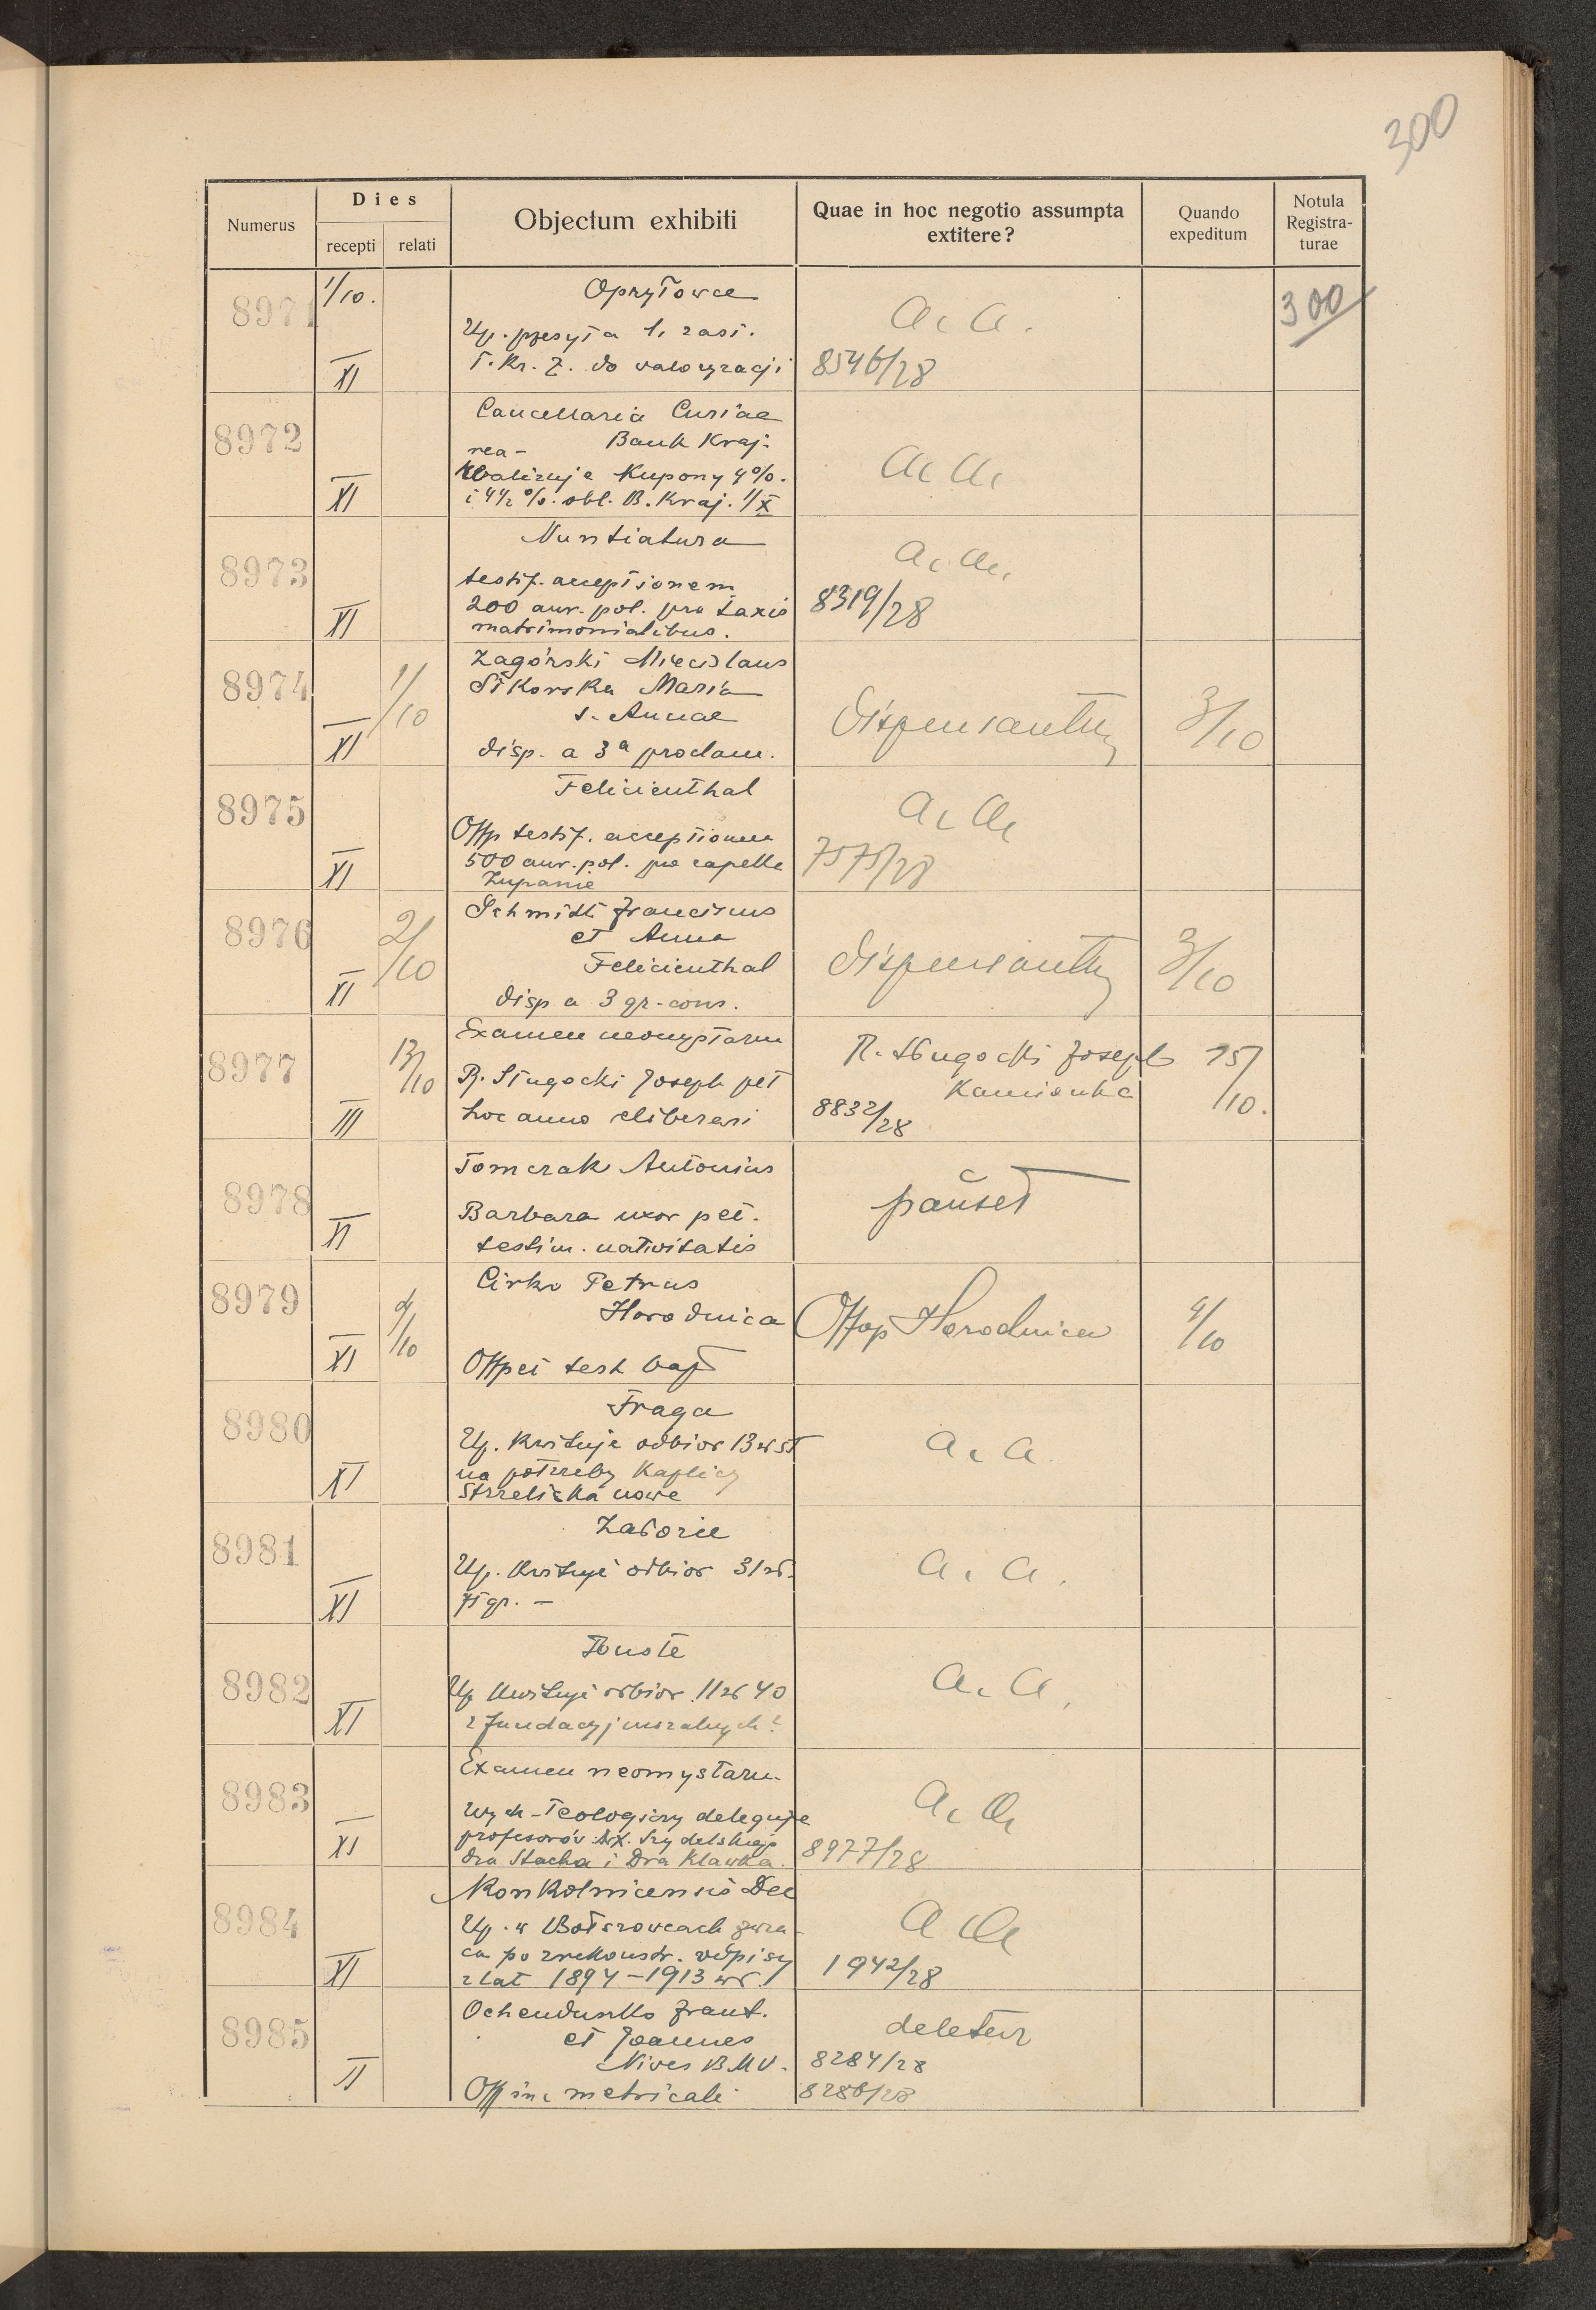 300
Numerus
Dies
recepti relati
Objectum exhibiti
Quae in hoc negotio assumpta
extitere?
Quando
expeditum
Notula
Registra-
turae
8971
1/10.
XI
Opryłowce
Up. przesyła 1. zast.
T. Kr. Z. do waloryzacji
a. a.
8546/28
300
8972
XI
Cancellaria Curiae
Bank Kraj.
rea-
lizuje Kupony 4%.
i 4½%. obl. B. Kraj. 1/X
a. a.
8973
XI
Nuntiatura
testif. acceptionem
200 aur. pol. pro taxis
matrimonialibus.
a. a.
8319/28
8974
XI
1/10
Zagórski Miecislaus
Sikorska Maria
s. Annae
disp. a 3ª proclam.
Dispensantur
3/10
8975
XI
Felicienthal
Offp testif. acceptionem
500 aur. pol. pro capella
Zupanie
a. a.
7575/28
8976
XI
2/10
Schmidt Franciscus
et Anna
Felicienthal
disp a 3 gr. cons.
Dispensantur
3/10
8977
III
13/10
Examen neomystarum
R. Sługocki Joseph pet
hoc anno eliberari
R. Sługocki Joseph
Kamionka
8832/28
15/10.
8978
XI
Tomczak Antonius
Barbara uxor pet.
testim. nativitatis
pauset
8979
XI
4/10
Cirko Petrus
Horodnica
Offpet test bapt
Offop Horodnica
4/10
8980
XI
Fraga
Up. Kwituje odbior 13
na potrzeby Kaplicy
Strzeliska nowe
a. a
8981
XI
Up. Kwituje odbior 31 zł.
75 gr. –
a. a.
8982
XI
Touste
Up Kwituje odbior 11 zł 40
z fundacyj mszalnych
a. a.
8983
XI
Examen neomystaru.
Wydz. Teologiczny deleguje
profesorów XX. Szydelskiego
dra Stacha i Dra Klawka.
a. a.
8977/28
8984
XI
Konkolnicensis Dec
Up. w Bołszowcach zwra-
ca po zrekonstr. odpisy
z lat 1894–1913
a a
1942/28
8985
II
Ochenduszko Frant.
et Joannes
Nives B.M.V.
Off in c metricali
deletur
8284/28
8286/28